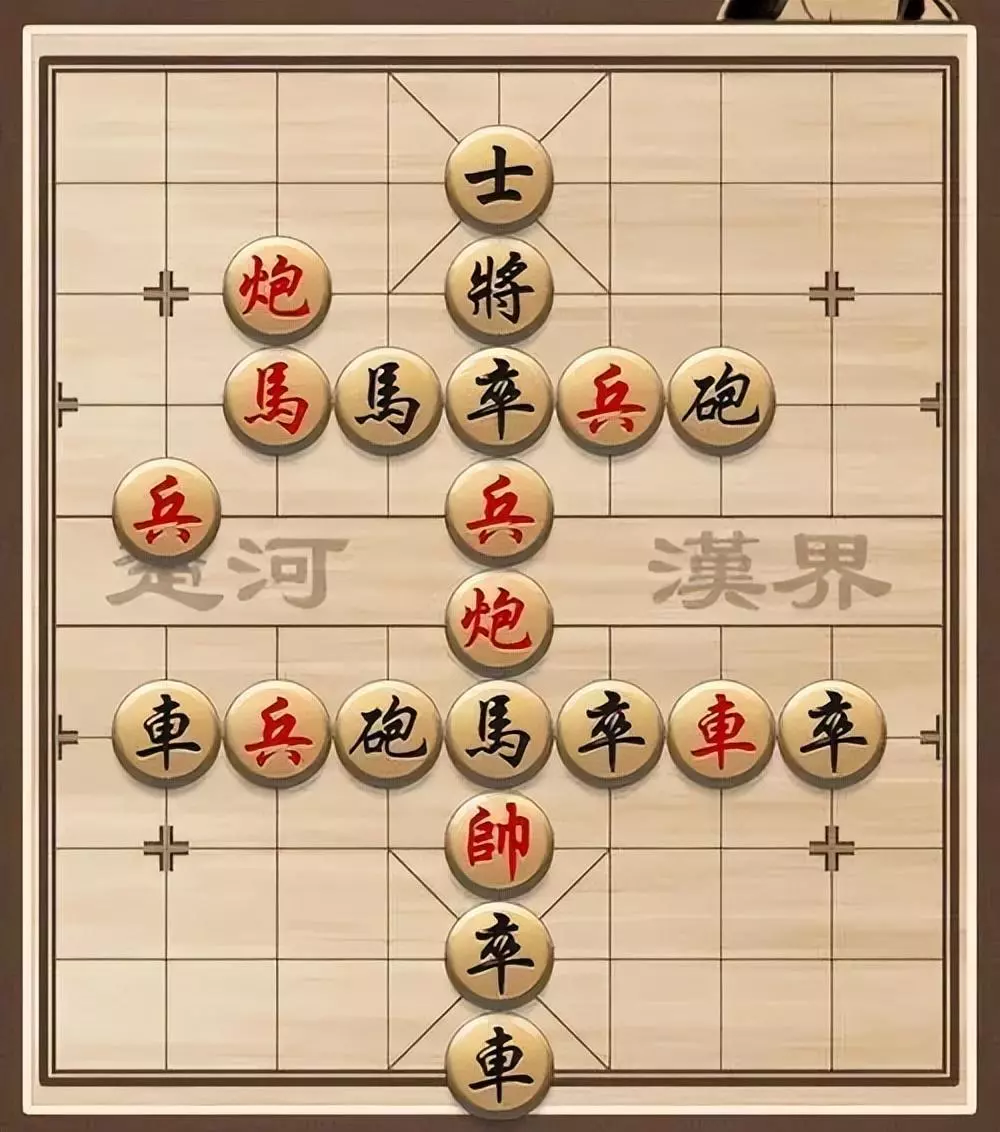 士
炮 將
馬 馬 卒 兵 砲
兵 兵
楚河 漢界
炮
車 兵 砲 馬 卒 車 卒
帥
卒
車